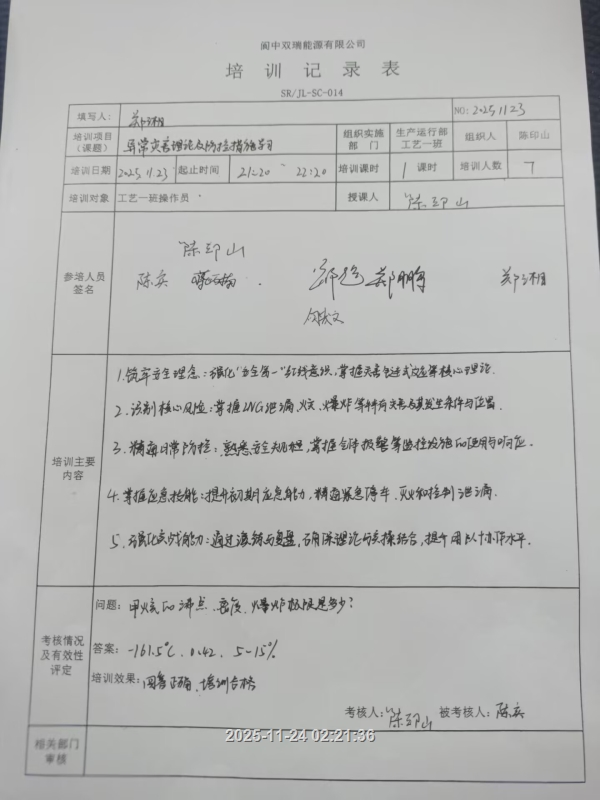 阆中双瑞能源有限公司
培训记录表
SR/JL-SC-014
填写人： 郑湘 NO: 20251123
培训项目（课题） 异常灾害理论及防控措施学习 组织实施部门 生产运行部工艺一班 组织人 陈印山
培训日期 2025.11.23 起止时间 21:20 22:20 培训课时 1 课时 培训人数 7
培训对象 工艺一班操作员 授课人 陈印山
参培人员签名
陈印山
陈实 郑鹏 郑湘
培训主要内容
1.筑牢安全理念：强化"安全第一"红线意识，掌握灾害链式效应等核心理论.
2.识别核心风险：掌握LNG泄漏、火灾、爆炸等特有灾害及其发生条件与后果.
3.精通日常防控：熟悉安全规程，掌握气体报警等监控设施的运用与响应.
4.掌握应急技能：提升初期应急能力，精通紧急停车、灭火和控制泄漏.
5.强化实战能力：通过演练与复盘，确保理论与实操结合，提升团队协作水平.
考核情况及有效性评定
问题：甲烷的沸点、密度、爆炸极限是多少？
答案：-161.5℃、0.42、5-15%
培训效果：回答正确、培训合格
考核人：陈印山 被考核人：陈实
相关部门审核
2025-11-24 02:21:36